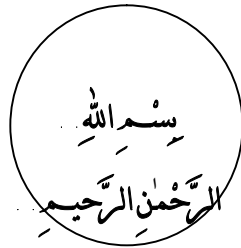 بِسْمِ اللّٰهِ
الرَّحْمٰنِ الرَّحيمِ